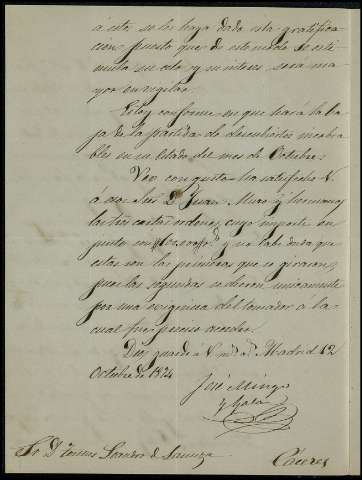 á este se le haya dado esta gratifica
cion, puesto que de este modo se esti
mula su celo y su interes será ma
yor en vigilar.
Estoy conforme en que hará la ba
ja de la partida de descubiertos incobra
bles en su Estado del mes de Octubre.
Veo con gusto ha satisfecho V.
á esos Sres D. Juan Muro y hermano
las tres cartas ordenes, cuyo importe en
junto son y no cabe duda que
estas son las primeras que se giraron,
pues las segundas se dieron unicamente
por una exigencia del tomador á la
cual fue preciso acceder.
Dios guarde á V. m.s a.s Madrid 12
Octubre de 1874
José Mingo
y Gala
Sr. D. Leandro de
Cáceres